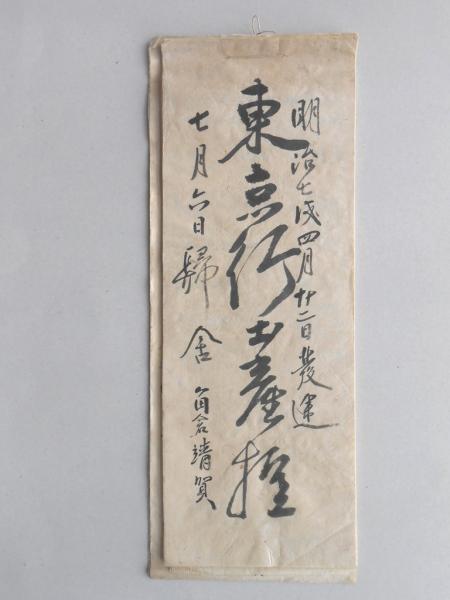 明治七戌四月廿二日發途
東京行土産控
七月六日歸舎
倉靖賀